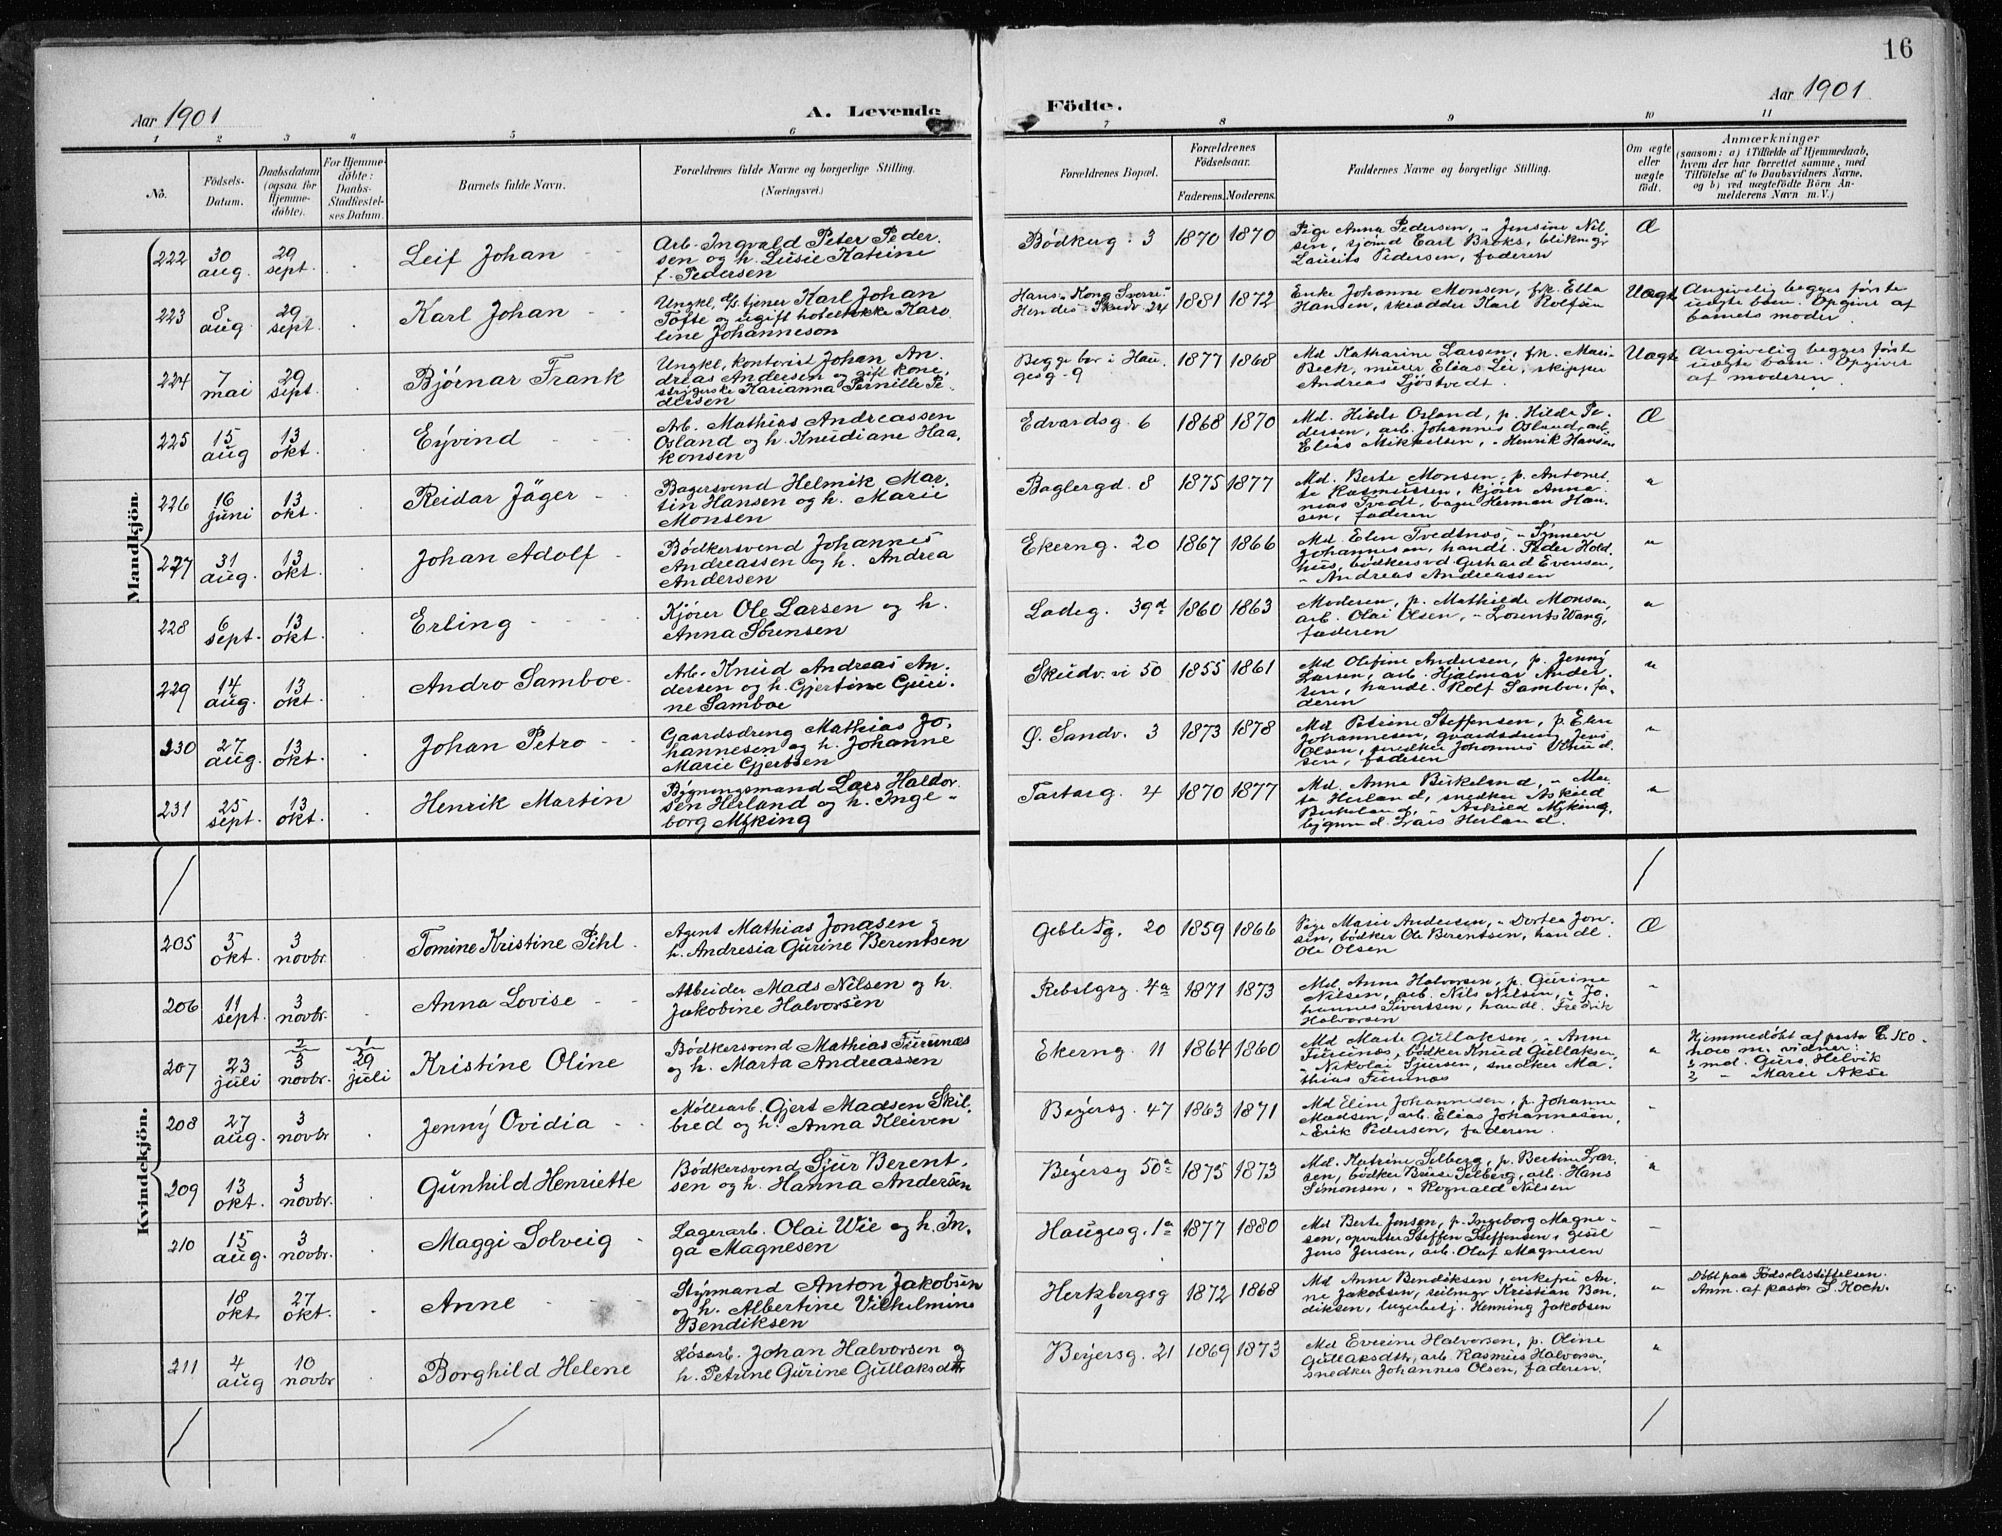 16
Aar 1901
A. Levende Födte.
Aar 1901
1 2 3 4 5 6 7 8 9 10 11
No.
Födsels-
Datum.
Daabsdatum
(ogsaa för
Hjemme-
döbte).
For Hjemme-
döbte:
Daabs-
Stadfæstel-
ses Datum.
Barnets fulde Navn.
Forældrenes fulde Navne og borgerlige Stilling.
(Næringsvei.)
Forældrenes Bopæl.
Forældrenes
Födselsaar.
Faderens. Moderens.
Faddernes Navne og borgerlige Stilling.
Om ægte
eller
uægte
födt.
Anmærkninger
(saasom: a) i Tilfælde af Hjemmedaab,
hvem der har forrettet samme, med
Tilföielse af to Daabsvidners Navne,
og b) ved uægtefödte Börn An-
melderens Navn m. V.)
Mandkjön.
222 30 aug. 29 sept. Leif Johan
Arb. Ingvald Peter Peder-
sen og h. Lusie Katrine
f. Pedersen
Bødkerg. 3 1870 1870
Pige Anna Pedersen, " Jensine Nil-
sen, sjømd Earl Broks, blikmgr
Laurits Pedersen, faderen
Æ
223 8 aug. 29 sept. Karl Johan
Ungkl, tjener Karl Johan
Tofte og ugift Karo-
line Johanneson
Hans: Kong Sverre
Hendes: Skudv. 24 1881 1872
Enke Johanne Monsen, frk. Ella
Hansen, skrædder Karl Rolfsen
Uægte
Angivelig begges første
uægte barn. Opgivet af
barnets moder.
224 7 mai 29 sept. Bjørnar Frank
Ungkl, kontorist Johan An-
dreas Andersen og gift kone,
strygerske Karianna Pernille Pe-
dersen
Begge bor i Hau-
gesg. 9 1877 1868
Md Katharine Larsen, frk. Mari-
Beck, murer Elias Lie, skipper
Andreas Sjöstvedt.
Uægte
Angivelig begges første
uægte barn. Opgivet
af moderen.
225 15 aug 13 okt. Eyvind
Arb. Mathias Andreassen
Osland og h. Knudiane Haa-
konsen
Edvardsg. 6 1868 1870
Md. Osland, p. Hilda Pe-
dersen, arb. Johannes Osland, arb.
Elias Mikkelsen, " Henrik Hansen
Æ
226 16 juni 13 okt. Reidar Jäger
Bagersvend Helmik Mar-
tin Hansen og h. Marie
Monsen
Baglergd. 8 1875 1877
Md. Berte Monsen, p. Antonet-
te Rasmussen, kjører Anna-
nias Tvedt, bager Herman Han-
sen, faderen
"
227 31 aug. 13 okt. Johan Adolf
Bødkersvend Johannes
Andreassen og h. Andrea
Andersen
Ekerng. 20 1867 1866
Md. Elen Tvedtnos, " Synneve
Johannesen, handl. Peder Hold-
hus, bødkersvd Gerhard Evensen,
" Andreas Andreassen
"
228 6 sept. 13 okt. Erling
Kjører Ole Larsen og h.
Anna Sørensen
Ladeg. 39d 1860 1863
Moderen, p. Mathilde Monsen,
arb. Olai Olsen, " Lorents Wang,
faderen
"
229 14 aug. 13 okt. Andro Samboe
Arb. Knud Andreas An-
dersen og h. Gjertine Guri-
ne Samboe
Skudv. vi 50 1855 1861
Md Olefine Andersen, p. Jenny
Larsen, arb. Hjalmar Ander-
sen, handl. Rolf Samboe, fa-
deren
"
230 27 aug. 13 okt. Johan Petro
Gaardsdreng Mathias Jo-
hannesen og h. Johanne
Marie Gjertsen
Ø. Sandv. 3 1873 1878
Md Petrine Steffensen, p. Elen
Johannesen, gaardsdreng Jens
Olsen, snedker Johannes Knud-
sen, faderen
"
231 25 sept. 13 okt. Henrik Martin
Bygningsmand Lars Haldor-
sen Herland og h. Inge-
borg Myking
Tartarg. 4 1870 1877
Md. Anna Birkeland, " Mar-
ta Herland, snedker Askild
Birkeland, " Askild Myking,
bygnmd. Lars Herland.
"
Kvindekjön.
205 5 okt. 3 novbr. Tomine Kristine Pihl
Agent Mathias Jonasen og
h. Andresia Gurine Berentsen
Geble Pg. 20 1859 1866
Pige Marie Andersen, " Dortea Jon-
sen, bødker Ole Berentsen, handl.
Ole Olsen
Æ
206 11 sept. 3 novbr. Anna Lovise
Arbeider Mads Nilsen og h.
Jakobine Halvorsen
Rebslgrg. 4a 1871 1873
Md. Anna Halvorsen, p. Gurine
Nilsen, arb. Nils Nilsen, " Jo-
hannes Sivertsen, handl. Fredrik
Halvorsen
"
207 23 juli 2 3 novbr. 1 29 juli Kristine Oline
Bødkersvend Mathias Furunæs
og h. Marta Andreassen
Ekerng. 11 1864 1860
Md Marte Gullaksen, " Anne
Furunæs, bødker Knud Gullaksen,
" Nikolai Sjursen, snedker Ma-
thias Furunæs
"
Hjemmedøbt af pasto E. Ko-
horo m. vidner:
1 md. Guro Helvik
2 " Marie Akse
208 27 aug. 3 novbr Jenny Ovidia
Møllearb. Gjert Madsen Skil-
bred og h. Anna Kleiven
Beyersg. 47 1863 1871
Md Eline Johannesen, p. Johanne
Madsen, arb. Elias Johannesen,
" Erik Pedersen, faderen.
"
209 13 okt. 3 novbr. Gunhild Henriette
Bødkersvend Sjur Berent-
sen og h. Hanna Andersen
Beyersg 50a 1875 1873
Md. Katrine Selberg, p. Bertine Lar-
sen, bødker Brise Selberg, arb. Hans
Simonsen, " Rognald Nilsen
"
210 15 aug. 3 novbr. Maggi Solveig
Lagerarb. Olai Wie og h. In-
ga Magnesen
Haugesg. 1a 1877 1880
Md Berte Jensen, p. Ingeborg Magne-
sen, opvarter Steffen Steffensen,
Jens Jensen, arb. Olaf Magnesen
"
18 okt. 27 okt. Anne
Styrmand Anton Jakobsen
og h. Albertine Vilhelmine
Bendiksen
Herkbergsg
1 1872 1868
Md Anne Bendiksen, enkefru An-
ne Jakobsen, seilmgr Kristian Ben-
diksen, lagerbesj. Henning Jakobsen
"
Døbt paa Fødselsstiftelsen.
Anm. af pastor S. Koch.
211 4 aug 10 novbr. Borghild Helene
Løsarb. Johan Halvorsen og
h. Petrine Gurine Gullaksdttr
Beyersg. 21 1869 1873
Md Everine Halvorsen, p. Oline
Gullaksdtr, arb. Rasmus Halvorsen,
snedker Johannes Olsen, faderen.
"